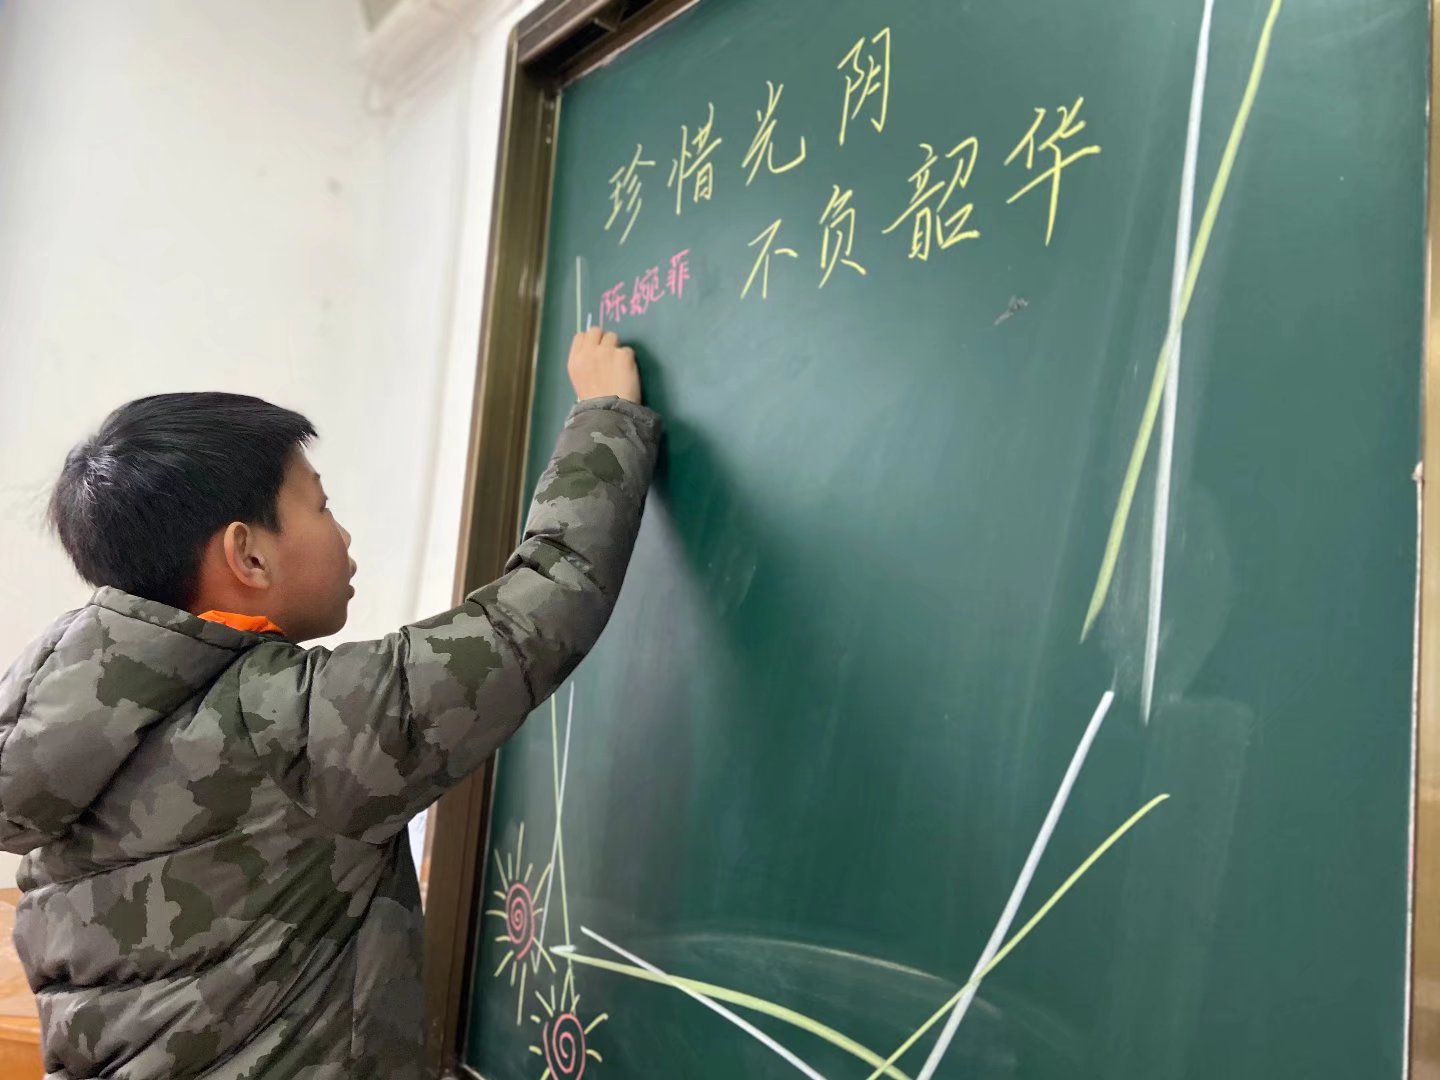 珍惜光阴
不负韶华
陈婉菲